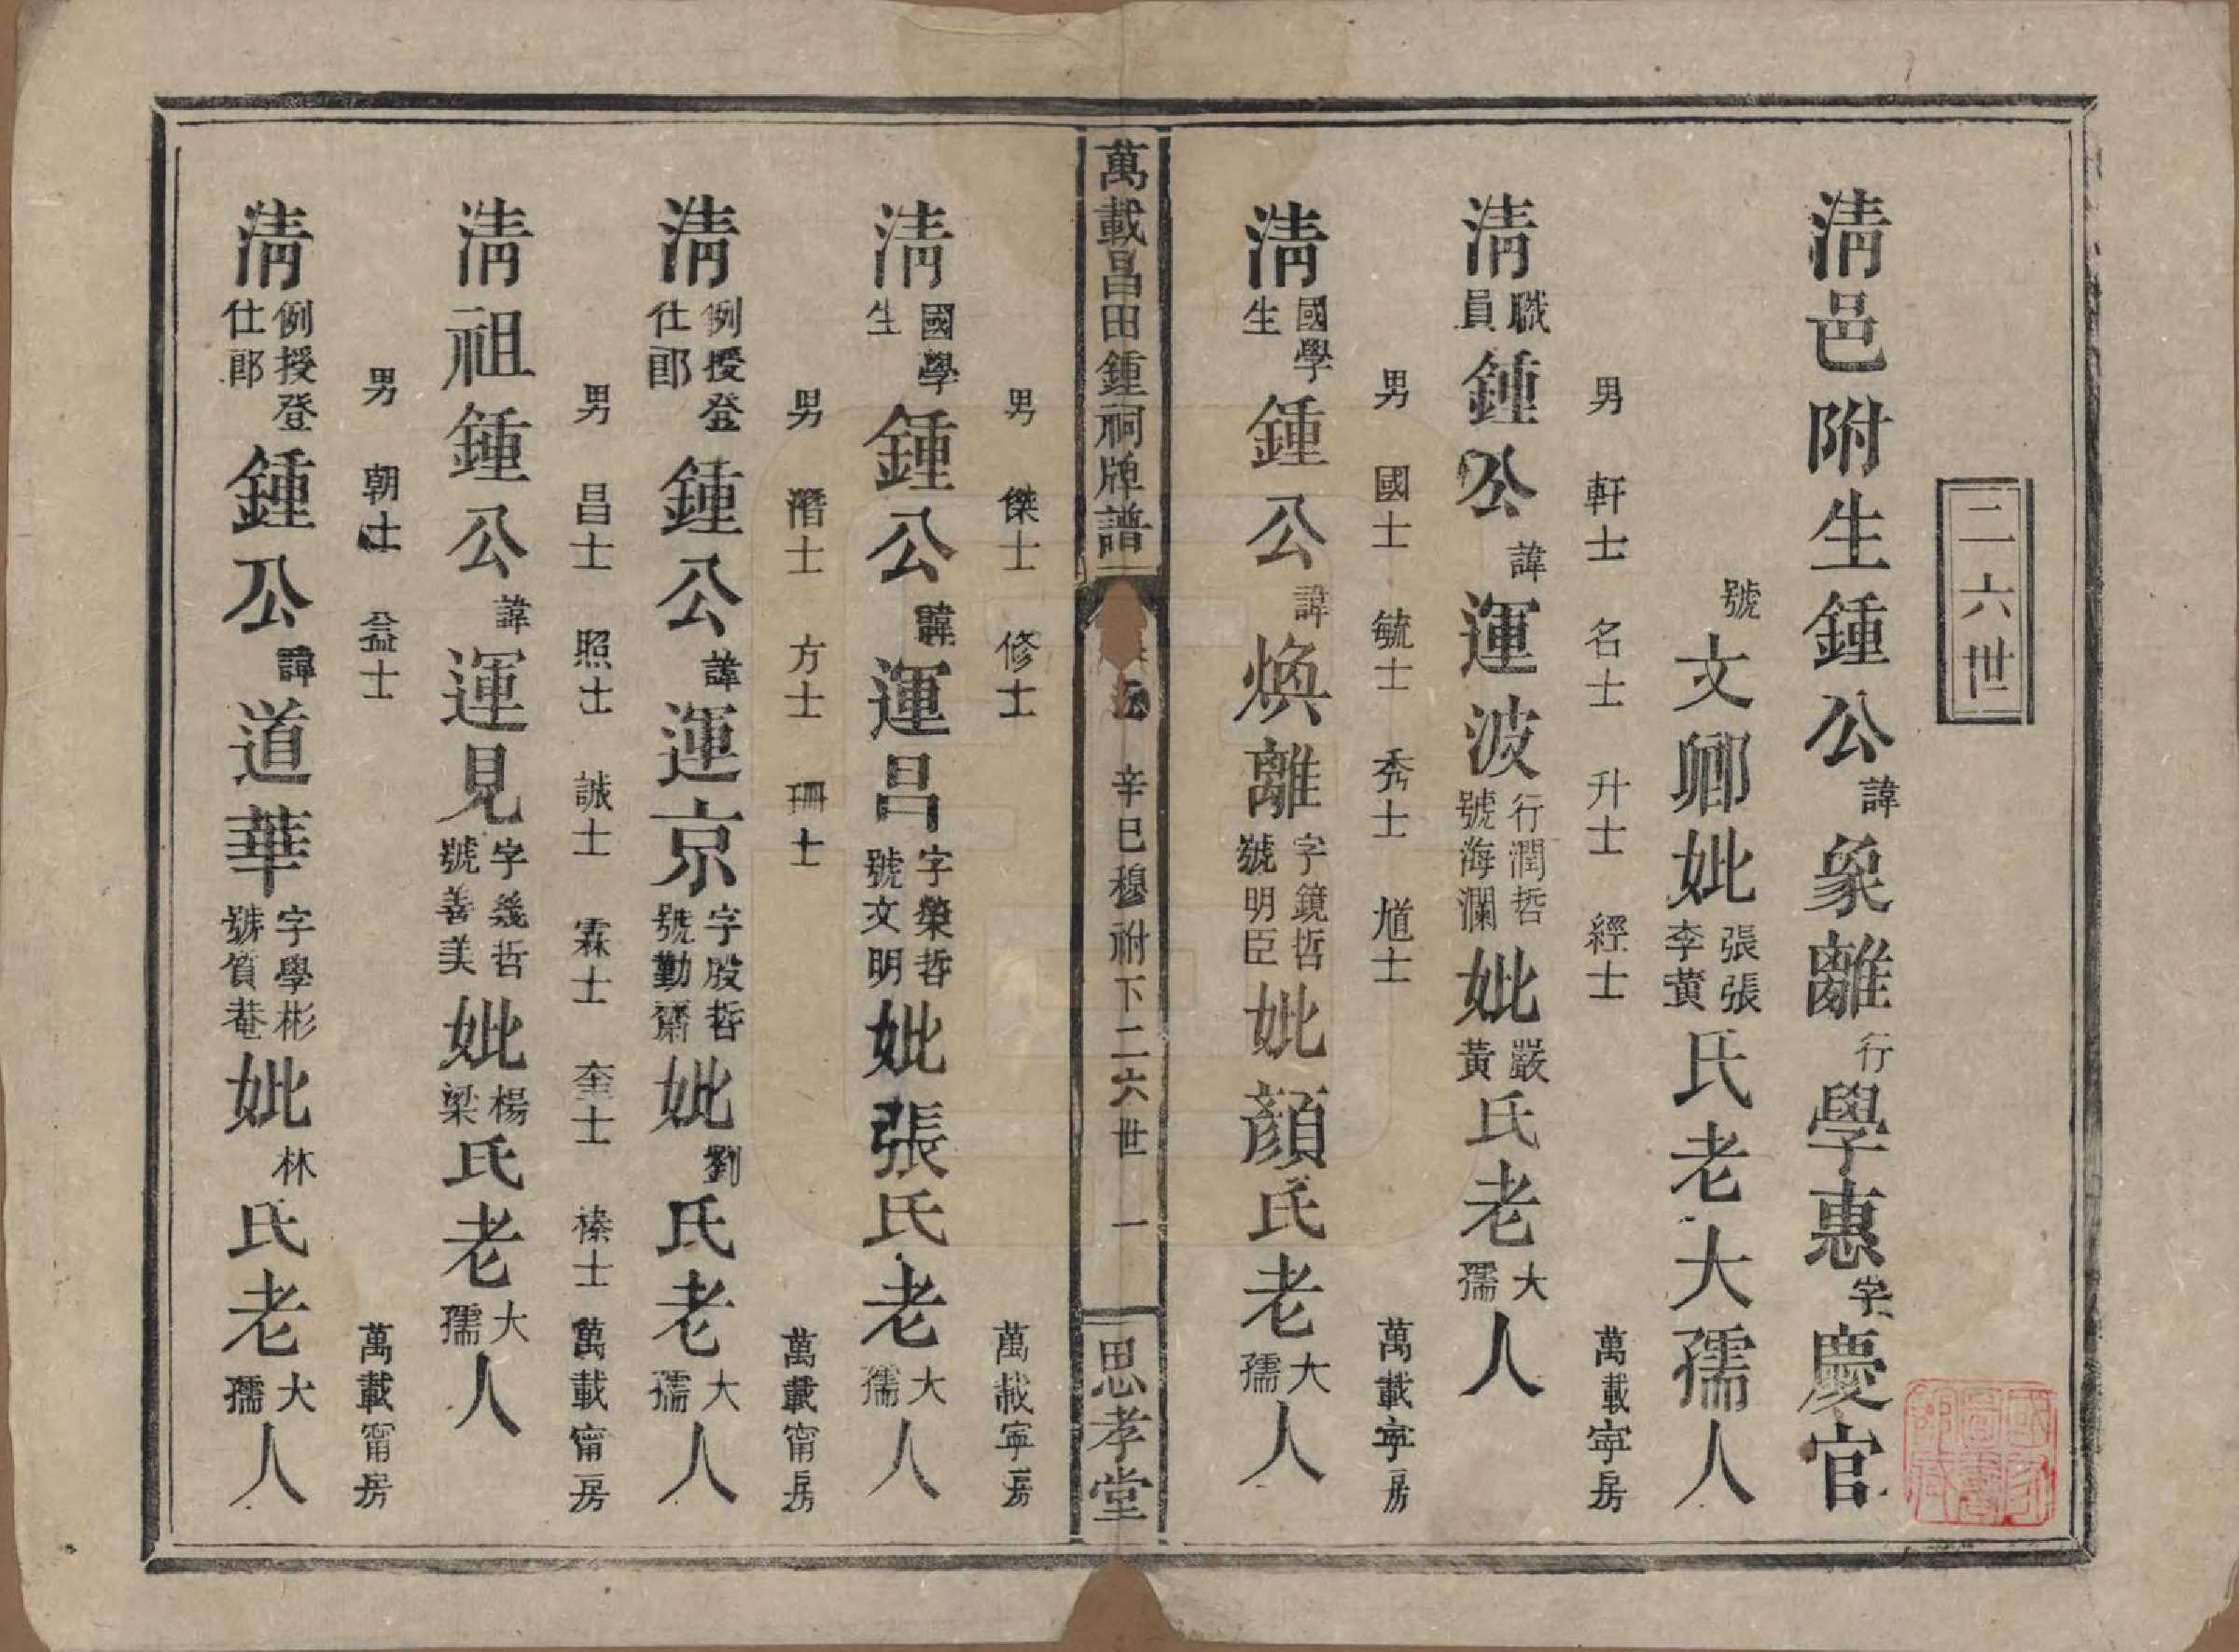 二六世
清邑附生鍾公諱象離行學惠字慶官
號文卿妣張張李黃氏老大孺人
男 軒士 名士 升士 經士 萬載寧房
清職員鍾公諱運波行潤哲號海瀾妣嚴黃氏老大孺人
男 國士 毓士 秀士 馗士 萬載寧房
清國學生鍾公諱煥離字鏡哲號明臣妣顏氏老大孺人
萬載昌田鍾祠牌譜
辛巳穆祔下二六世 一
思孝堂
男 傑士 修士 萬載寧房
清國學生鍾公諱運昌字榮哲號文明妣張氏老大孺人
男 濳士 方士 冊士 萬載甯房
清例授登仕郎鍾公諱運京字股哲號勤齋妣劉氏老大孺人
男 昌士 照士 誠士 霖士 奎士 榛士 萬載甯房
清祖鍾公諱運見字幾哲號善美妣楊梁氏老大孺人
男 朝士 益士 萬載甯房
清例授登仕郎鍾公諱道華字學彬號質菴妣林氏老大孺人